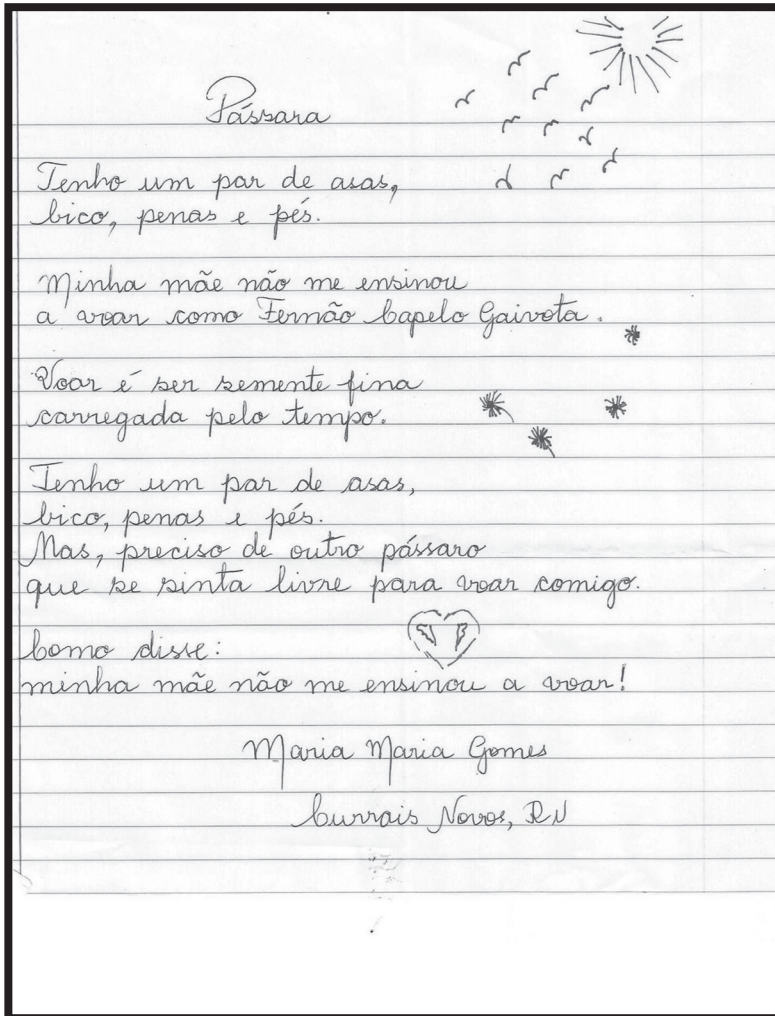 Pássara
Tenho um par de asas,
bico, penas e pés.
Minha mãe não me ensinou
a voar como Fernão Capelo Gaivota.
Voar é ser semente fina
carregada pelo tempo.
Tenho um par de asas,
bico, penas e pés.
Mas, preciso de outro pássaro
que se sinta livre para voar comigo.
Como disse:
minha mãe não me ensinou a voar!
Maria Maria Gomes
Currais Novos, RN